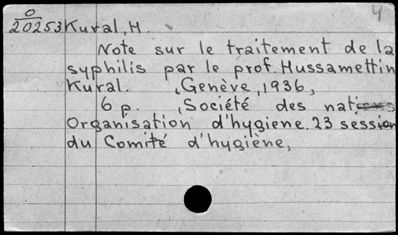 4
O
20253 Kural, H.
Note sur le traitement de la
syphilis par le prof. Hussamettin
Kural. , Genève, 1936,
6 p. , Société des nations
Organisation d'hygiene. 23 session
du Comité d'hygiène,